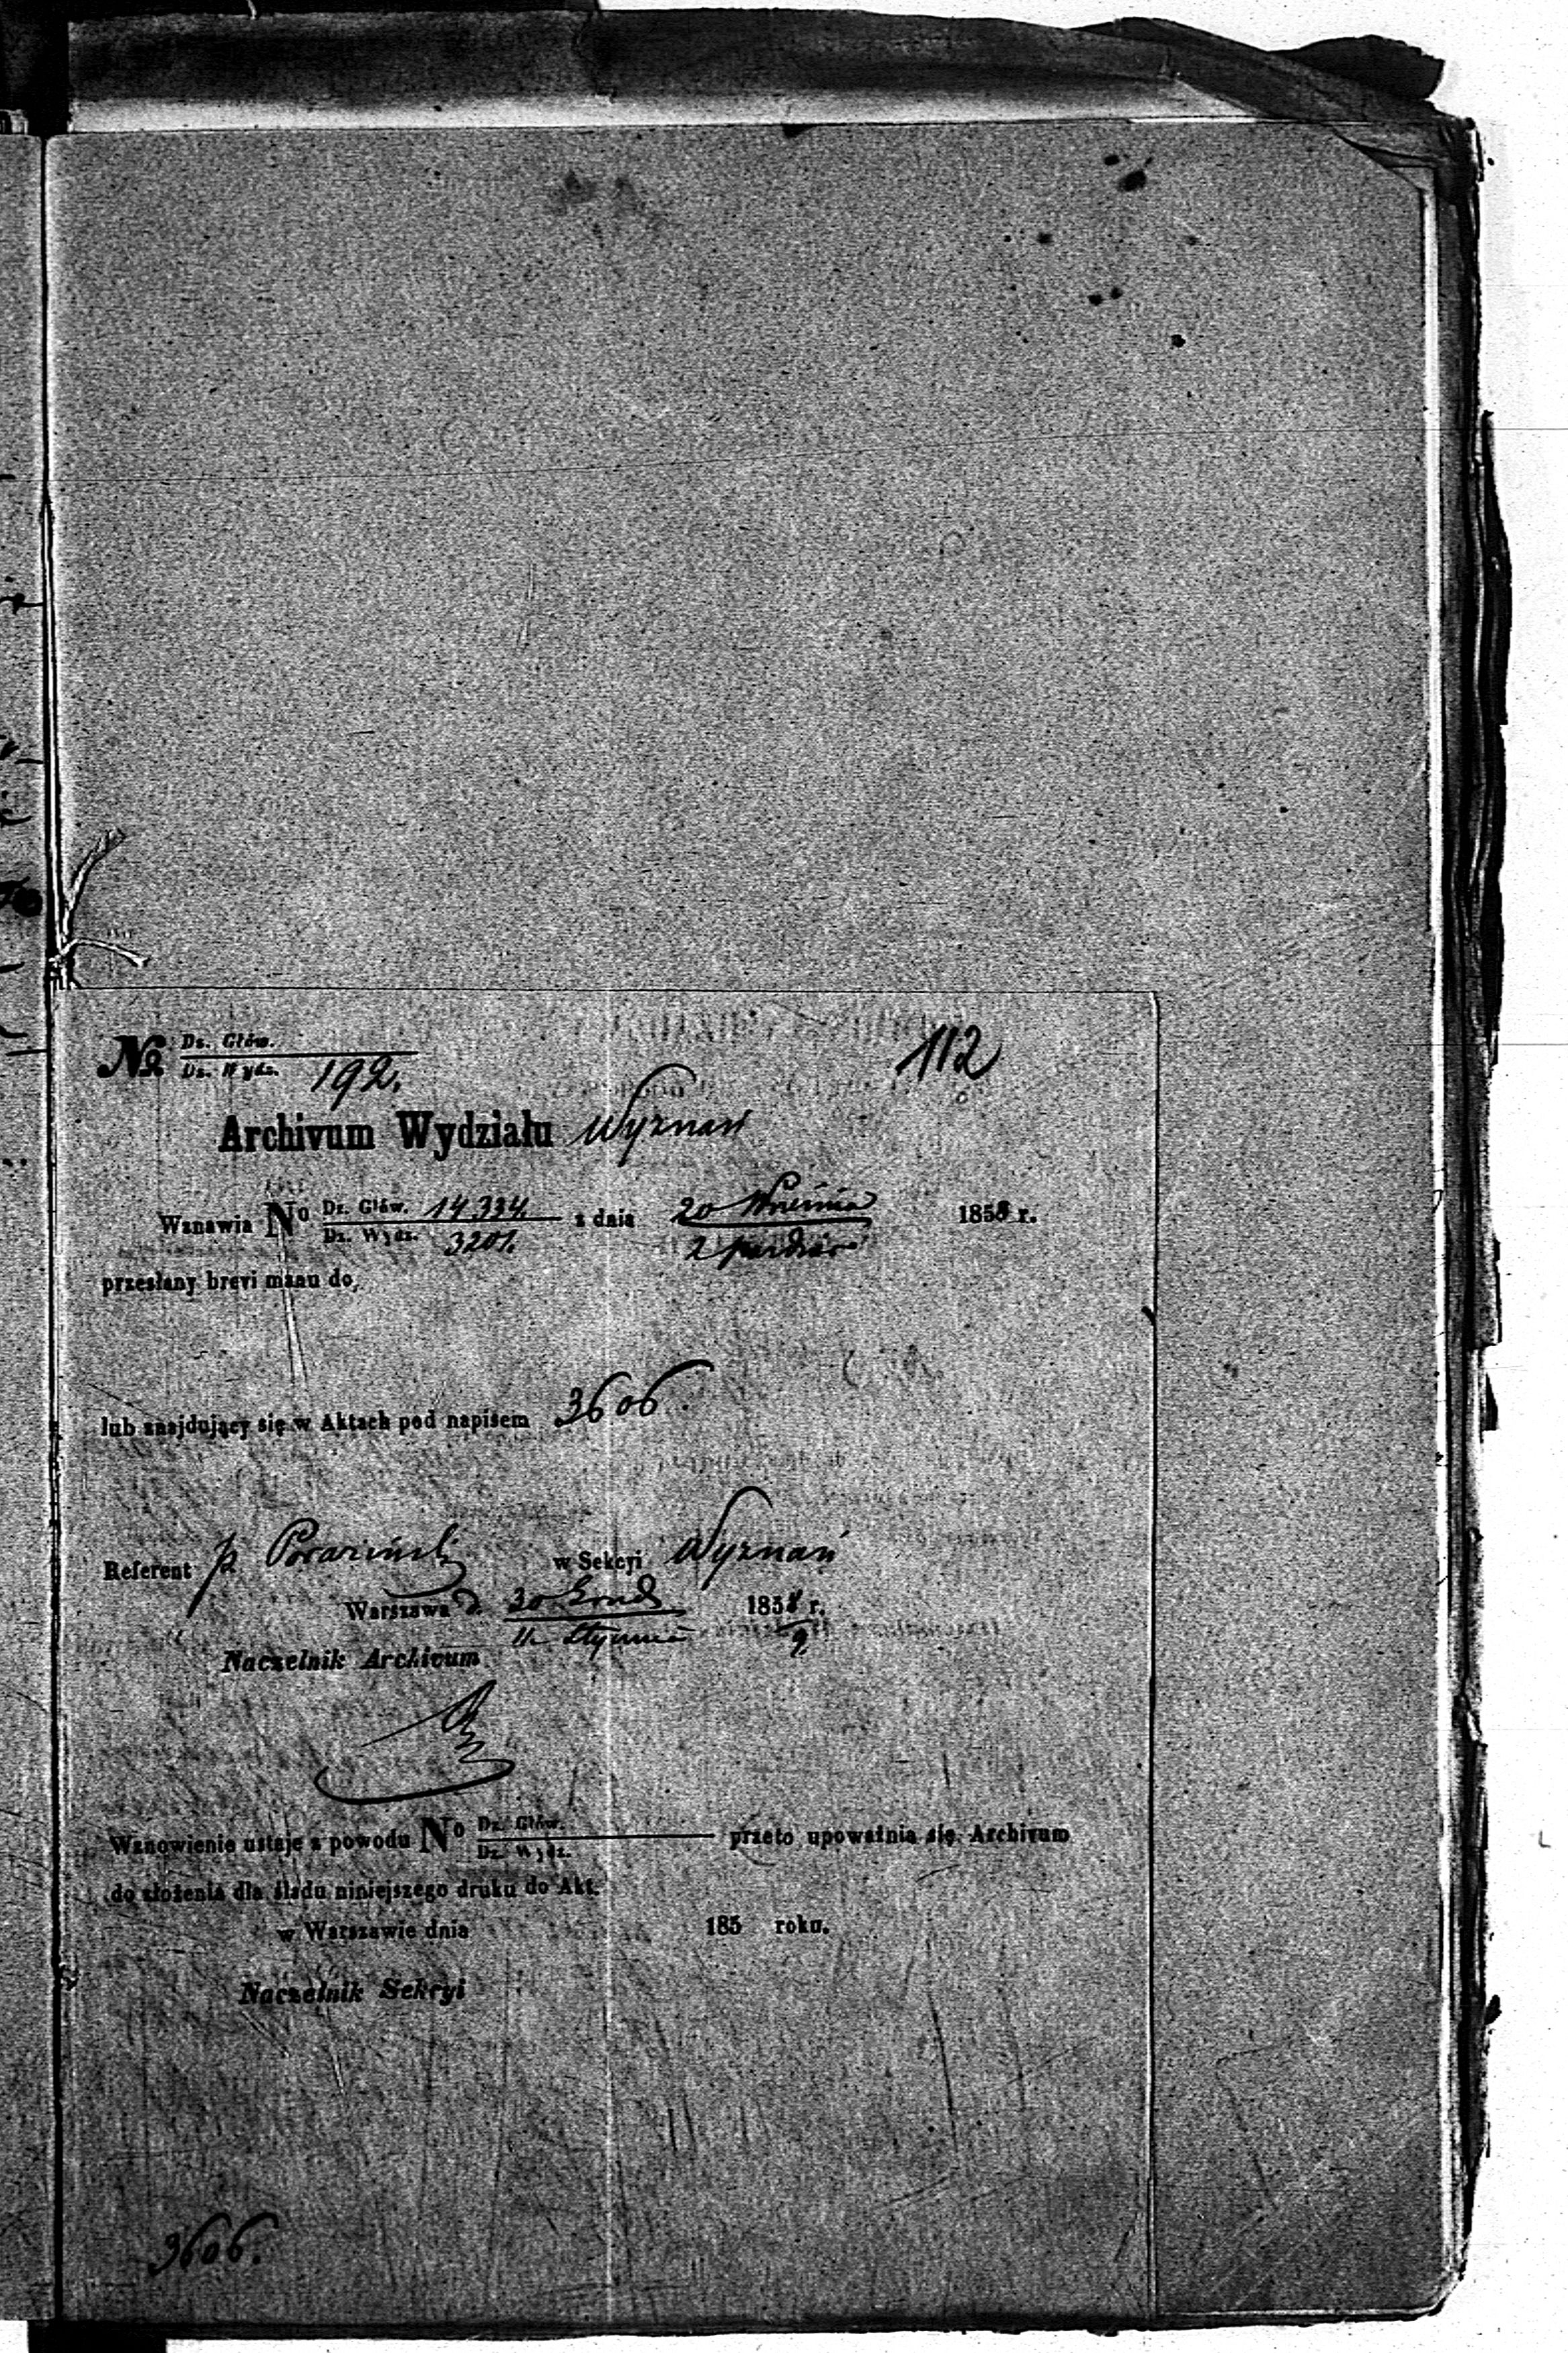 112
№ Dz. Głów.
Dz. Wydz. 192.
Archivum Wydziału Wyznań
Wznawia No Dz. Głów. 14.334. z dnia 20 Września 1858 r.
Dz. Wydz. 3201. 2 paździer
przesłany brevi manu do
lub znajdujący się w Aktach pod napisem 3606.
Referent p. w Sekcyi Wyznań
Warszawa d. 30 Grud 1858 r.
11 Stycznia 9
Naczelnik Archivum
Wznowienie ustaje z powodu No Dz. Głów. przeto upoważnia się Archivum
Dz. Wydz.
do złożenia dla śladu niniejszego druku do Akt.
w Warszawie dnia 185 roku.
Naczelnik Sekcyi
3606.